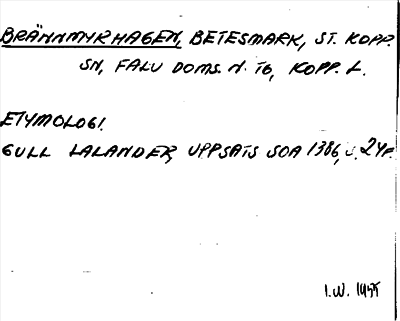 BRÄNNMYRHAGEN, BETESMARK, ST. KOPP.
SN, FALU DOMS. N. TG, KOPP. L.
ETYMOLOGI.
GULL LALANDER, UPPSATS SOA 1386, S. 24F.
I.W. 1955